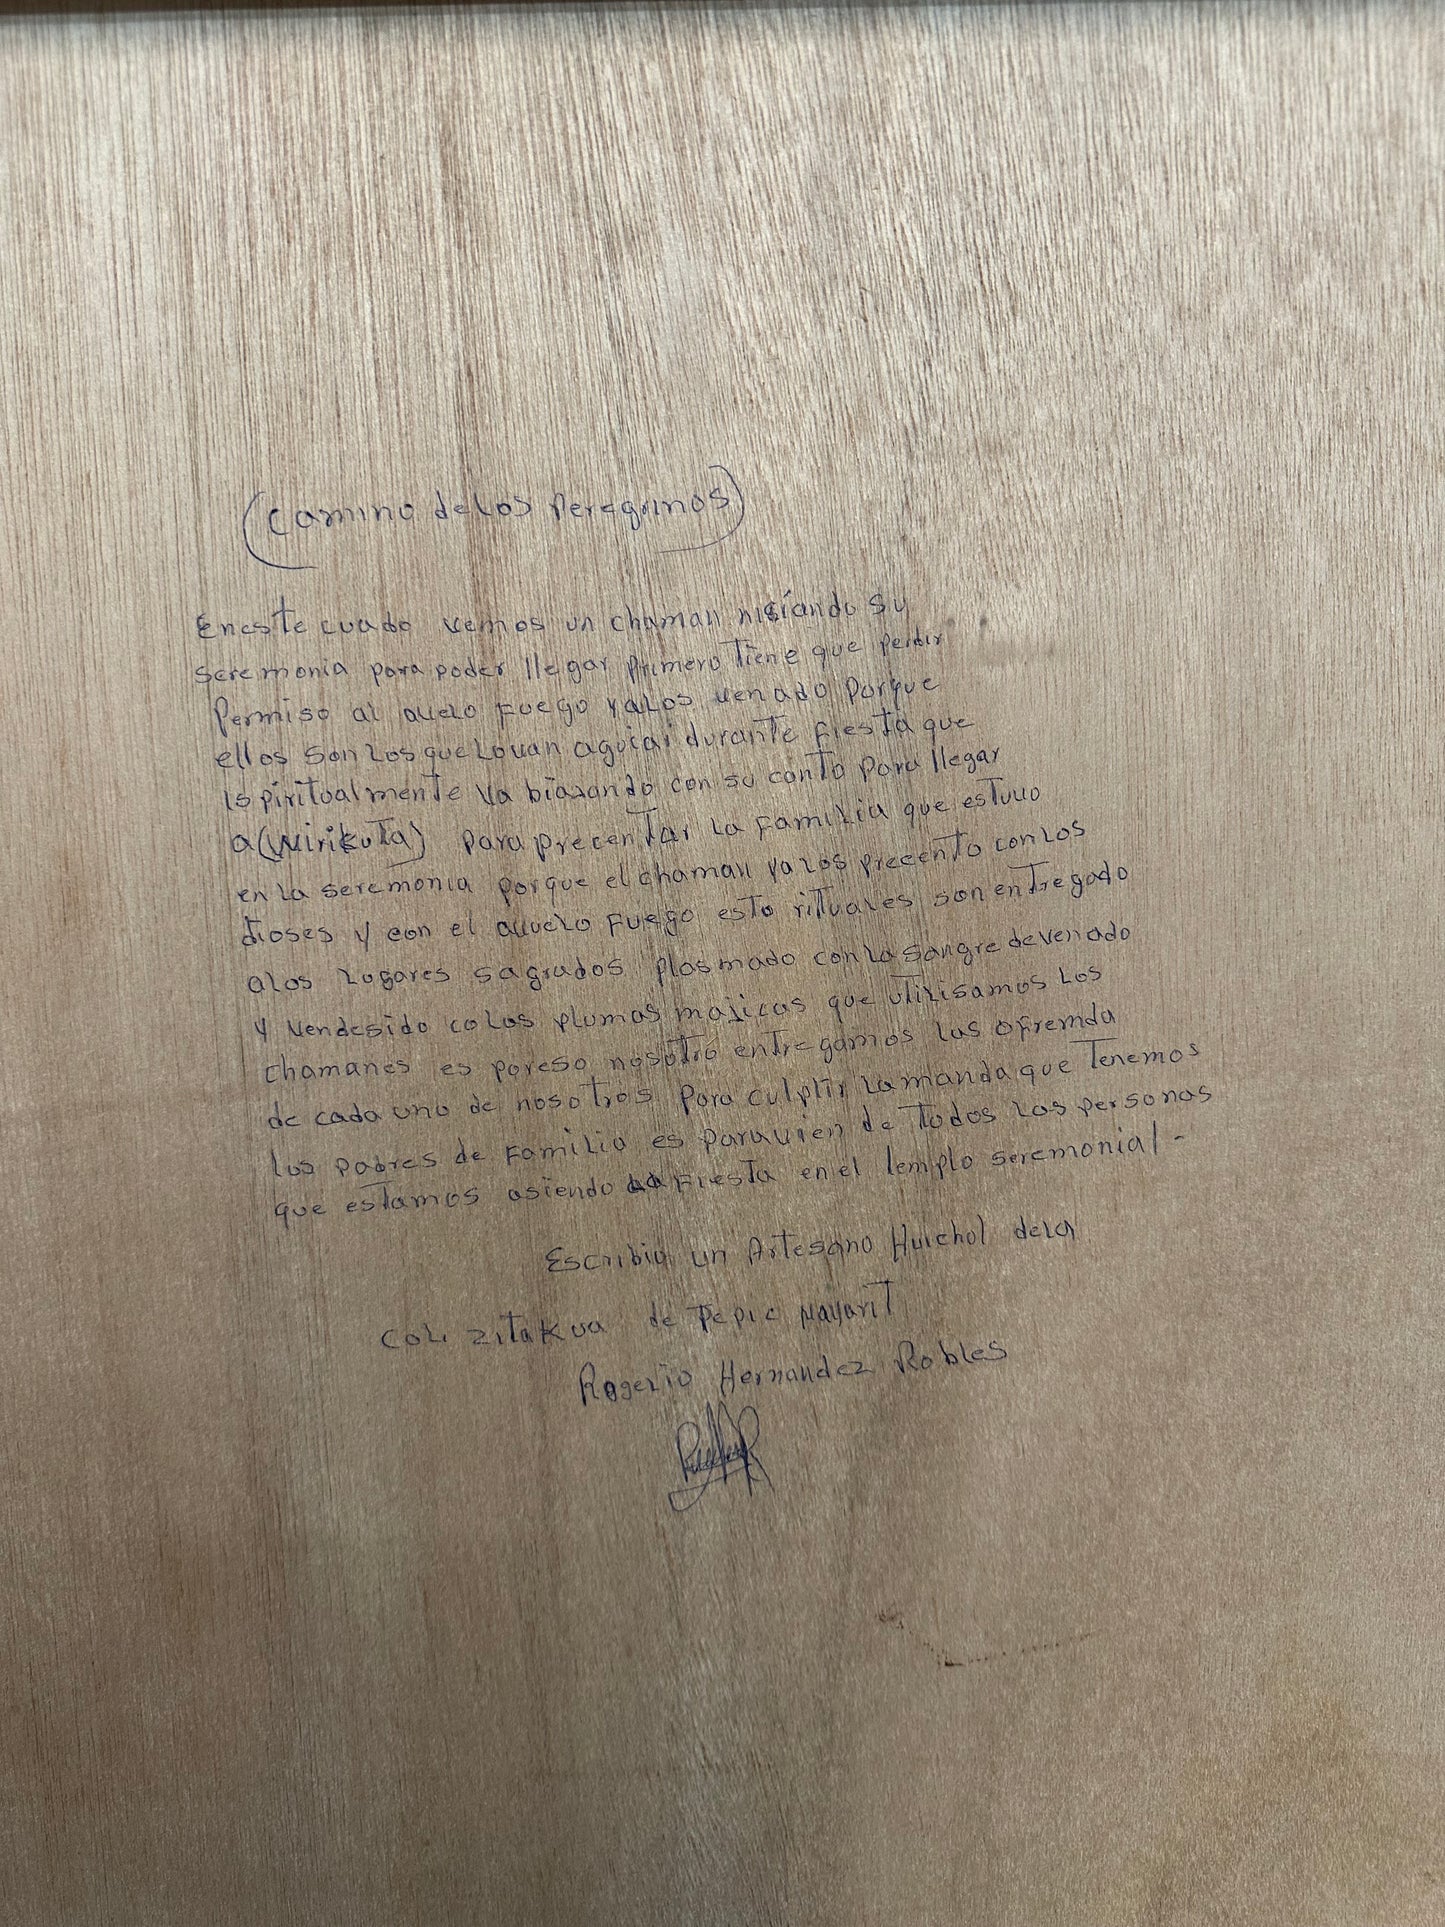 (Camino delos Peregrinos)
Eneste cuado vemos un chaman nisiando su
seremonia para poder llegar primero tiene que perdir
Permiso al auelo Fuego yalos venado Porque
ellos son los que lo van aguiai durante fiesta que
ispiritualmente va biazando con su canto para llegar
a (Wirikuta) para precentar la Familia que estuvo
en la seremonia porque el chaman ya los precento con los
dioses y con el auuelo Fuego esto rituales son entregado
alos lugares sagrados plasmado con la sangre de venado
y vendesido colas plumas majicas que utilisamos los
chamanes es poreso nosotro entregamos las ofremda
de cada uno de nosotros para culplir la manda que tenemos
los padres de Familia es paravien de todos las personas
que estamos asiendo la Fiesta en el templo seremonial -
Escribio un Artesano Huichol dela
Col. zitakua de Tepic Nayarit
Rogelio Hernandez Robles